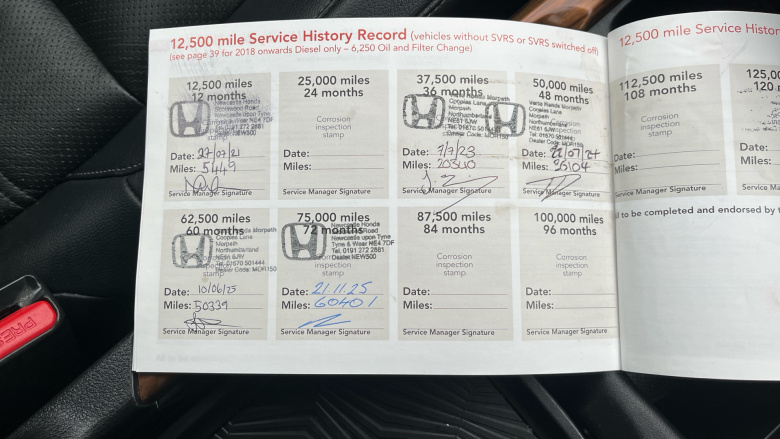 12,500 mile Service History Record (vehicles without SVRS or SVRS switched off)
(see page 39 for 2018 onwards Diesel only – 6,250 Oil and Filter Change)
12,500 miles
12 months
Newcastle Honda
Newcastle upon Tyne
Tyne & Wear NE4 7DF
Tel. 0191 272 2881
Dealer NEW500
Date: 27/07/21
Miles: 5449
Service Manager Signature
25,000 miles
24 months
Corrosion
inspection
stamp
Date:
Miles:
Service Manager Signature
37,500 miles
36 months
Vertu Honda Morpeth
Coopies Lane,
Morpeth
Northumberland
NE61 6JW
Tel: 01670 501444
Dealer Code: MOR150
Date: 7/7/23
Miles: 20340
Service Manager Signature
50,000 miles
48 months
Vertu Honda Morpeth
Coopies Lane,
Morpeth
Northumberland
NE61 6JW
Tel: 01670 501444
Dealer Code: MOR150
Date: 22/07/24
Miles:
Service Manager Signature
62,500 miles
60 months
Honda Morpeth
Coopies Lane,
Morpeth
Northumberland
NE61 6JW
Tel: 01670 501444
Dealer Code: MOR150
stamp
Date: 10/06/25
Miles: 50339
Service Manager Signature
75,000 miles
72 months
Newcastle Honda
Road
Newcastle upon Tyne
Tyne & Wear NE4 7DF
Tel. 0191 272 2881
Dealer NEW500
stamp
Date: 21.11.25
Miles: 60401
Service Manager Signature
87,500 miles
84 months
Corrosion
inspection
stamp
Date:
Miles:
Service Manager Signature
100,000 miles
96 months
Corrosion
inspection
stamp
Date:
Miles:
Service Manager Signature
12,500 mile Service Histor
112,500 miles
108 months
Corrosion
inspection
stamp
Date:
Miles:
Service Manager Signature
125,0
120
Date:
Miles:
Service
to be completed and endorsed by
PRES